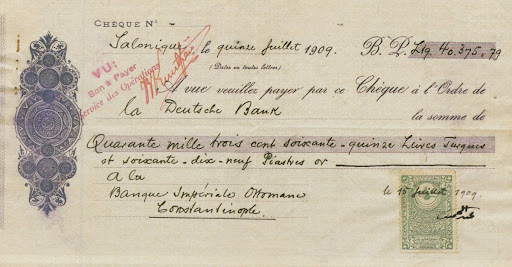 CHÈQUE Nº
Salonique, le quinze Juillet 1909. B. P. L19. 40.375,79
(Dates en toutes lettres)
VU:
Bon à Payer
Service des Opérations
A vue veuillez payer par ce Chèque à l'Ordre de
la Deutsche Bank
la somme de
Quarante mille trois cent soixante-quinze Livres Turques
et soixante-dix-neuf Piastres or
A la
Banque Impériale Ottomane
Constantinople.
le 15 Juillet 1909.